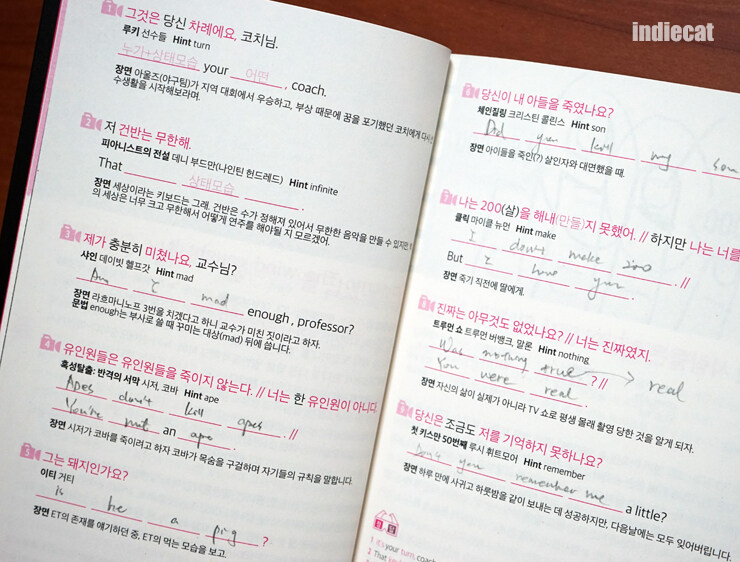 indiecat
1 그것은 당신 차례에요, 코치님.
루키 선수들 Hint turn
누가+상태모습 your 어떤, coach.
장면 아울즈(야구팀)가 지역 대회에서 우승하고, 부상 때문에 꿈을 포기했던 코치에게 다시 선
수생활을 시작해보라며.
2 저 건반는 무한해.
피아니스트의 전설 데니 부드만(나인틴 헌드레드) Hint infinite
That 상태모습 .
장면 세상이라는 키보드는 그래. 건반은 수가 정해져 있어서 무한한 음악을 만들 수 있지만, 
의 세상은 너무 크고 무한해서 어떻게 연주를 해야될 지 모르겠어.
3 제가 충분히 미쳤나요, 교수님?
샤인 데이빗 헬프갓 Hint mad
Am I mad enough, professor?
장면 라흐마니노프 3번을 치겠다고 하니 교수가 미친 짓이라고 하자.
문법 enough는 부사로 쓸 때 꾸미는 대상(mad) 뒤에 씁니다.
4 유인원들은 유인원들을 죽이지 않는다. // 너는 한 유인원이 아니다.
혹성탈출: 반격의 서막 시저, 코바 Hint ape
Apes don't kill apes. //
You're not an ape.
장면 시저가 코바를 죽이려고 하자 코바가 목숨을 구걸하며 자기들의 규칙을 말합니다.
5 그는 돼지인가요?
이티 거티
is he a ping?
장면 ET의 존재를 얘기하던 중, ET의 먹는 모습을 보고.
6 당신이 내 아들을 죽였나요?
체인질링 크리스틴 콜린스 Hint son
Did you kill my son
장면 아이들을 죽인(?) 살인자와 대면했을 때.
7 나는 200(살)을 해내(만들)지 못했어. // 하지만 나는 너를
클릭 마이클 뉴먼 Hint make
I don't make 200. //
But I have you.
장면 죽기 직전에 딸에게.
진짜는 아무것도 없었나요? // 너는 진짜였지.
트루먼 쇼 트루먼 버뱅크, 말론 Hint nothing
Was nothing true? // real
You were real.
장면 자신의 삶이 실제가 아니라 TV 쇼로 평생 몰래 촬영 당한 것을 알게 되자.
당신은 조금도 저를 기억하지 못하나요?
첫 키스만 50번째 루시 휘트모어 Hint remember
Don't you remember me a little?
장면 하루 만에 사귀고 하룻밤을 같이 보내는 데 성공하지만, 다음날에는 모두 잊어버립니다.
1 It's your turn, coach
2 That